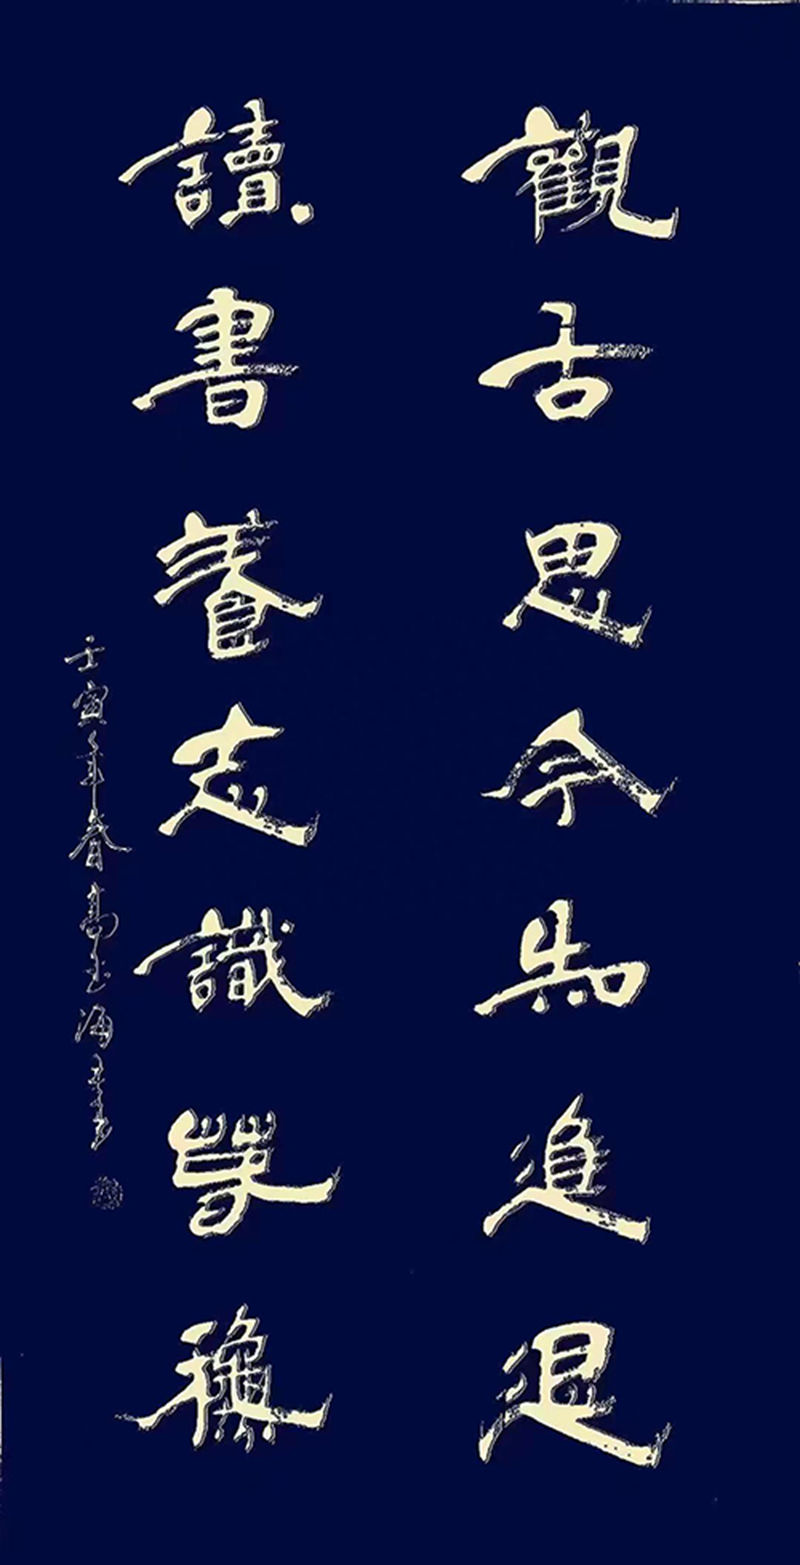 觀古思今知進退
讀書養志識春秋
壬寅年春高玉海